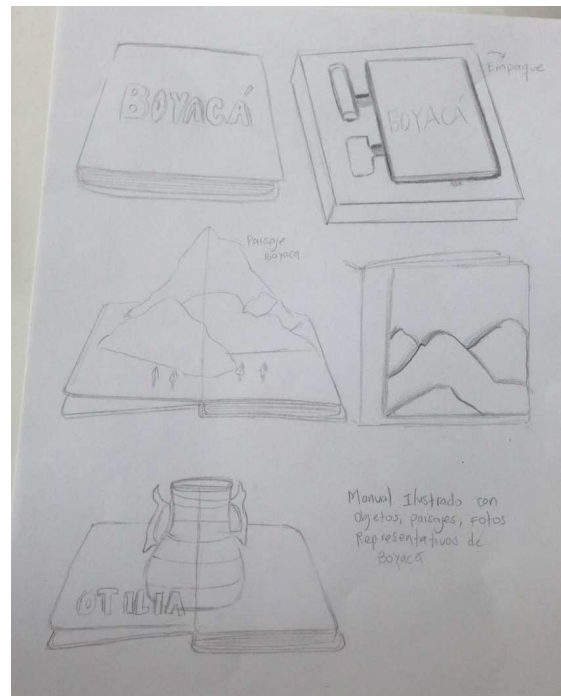 BOYACÁ
Empaque
BOYACÁ
Paisaje
Boyacá
Manual Ilustrado con
objetos, paisajes, fotos
Representativos de
Boyacá
OTILIA